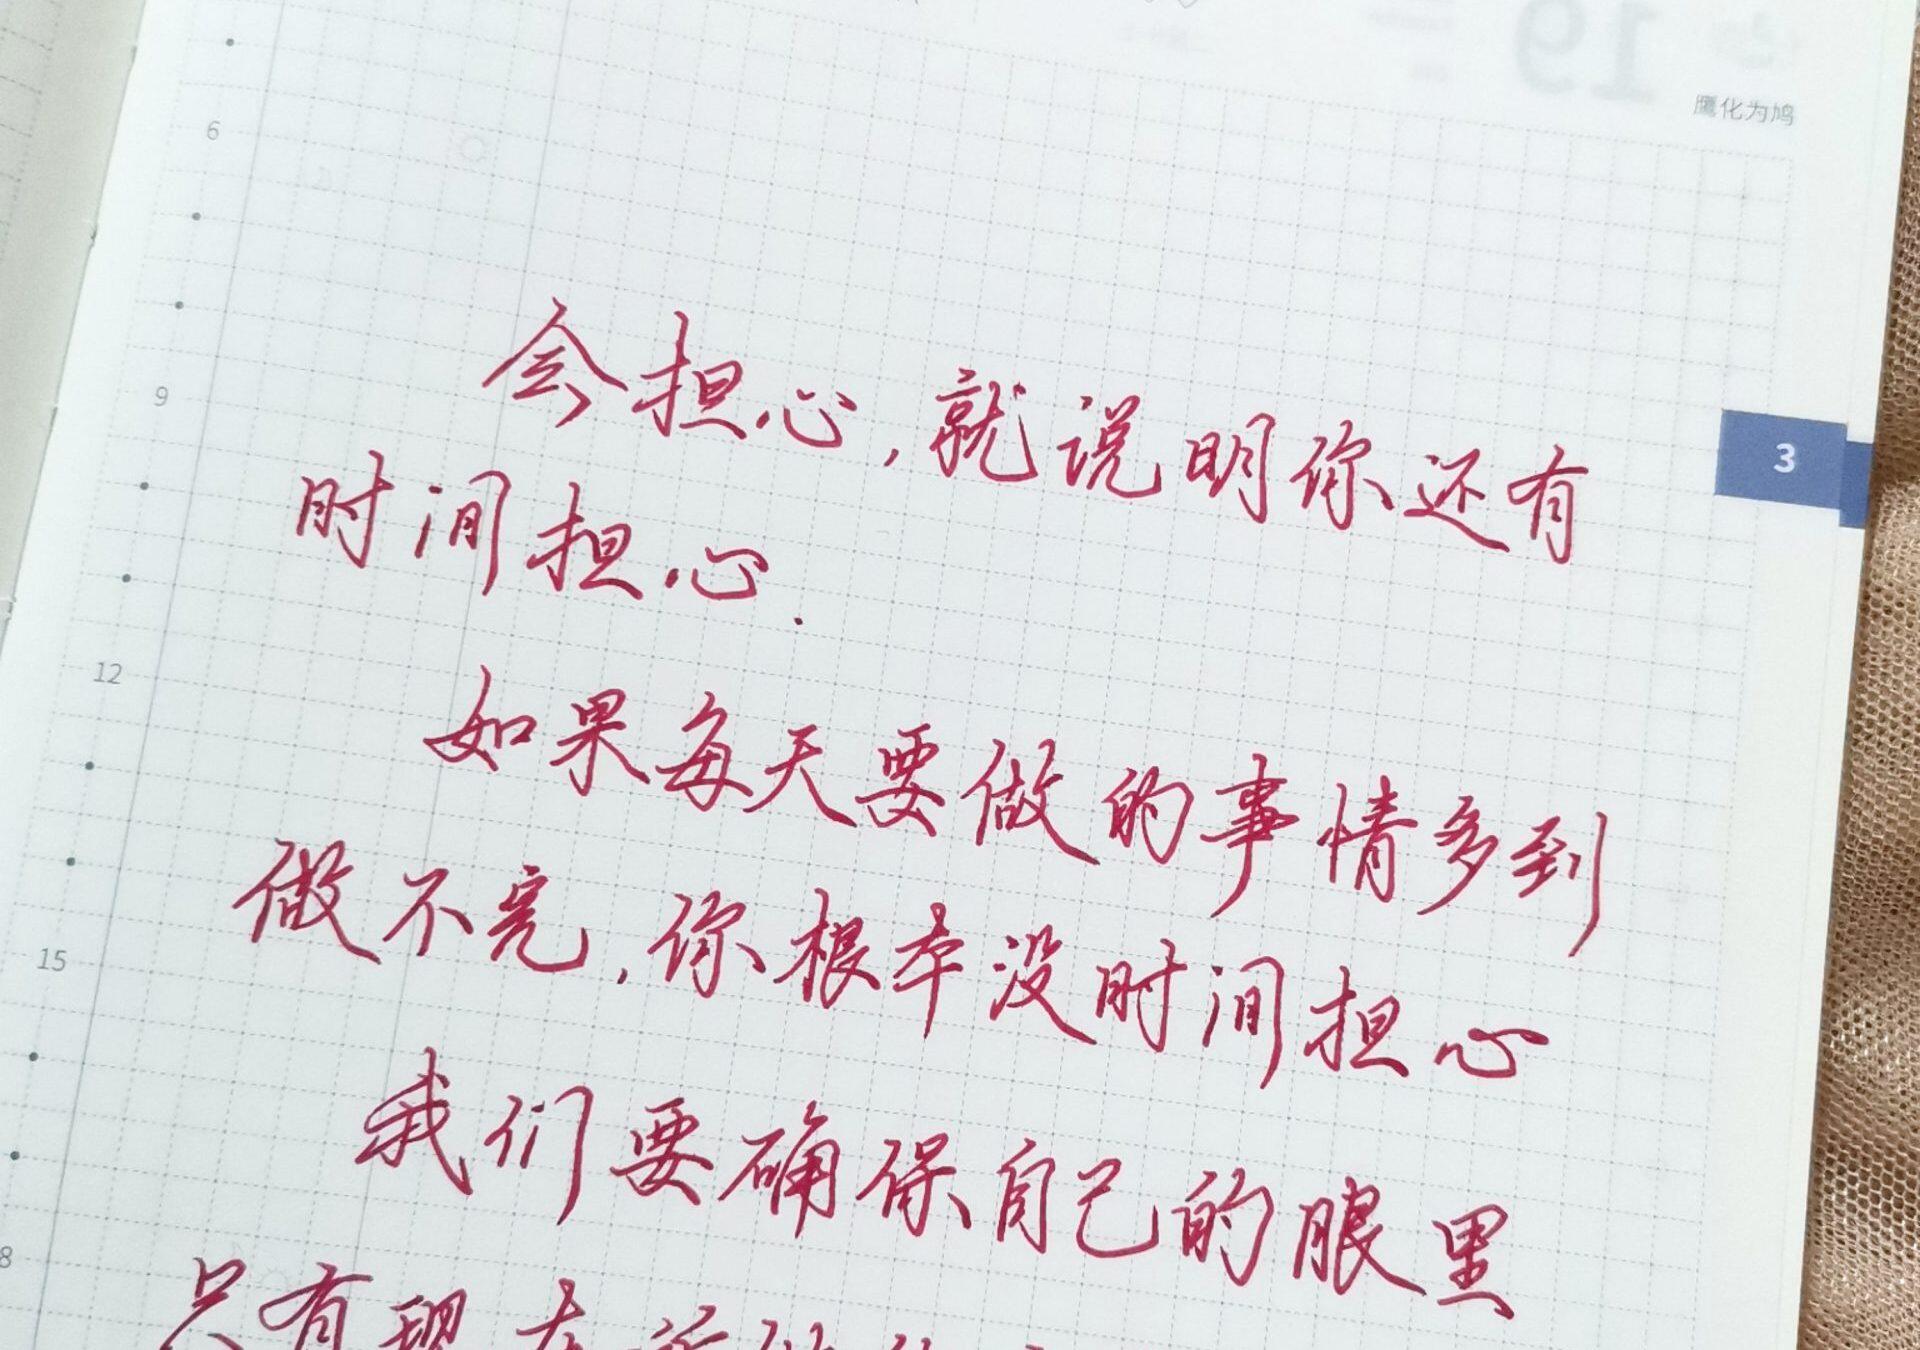 19
鷹化为鸠
6
会担心,就说明你还有
3
9
时间担心.
12
如果每天要做的事情多到
做不完,你根本没时间担心
15
我们要确保自己的眼里
8
只有现在